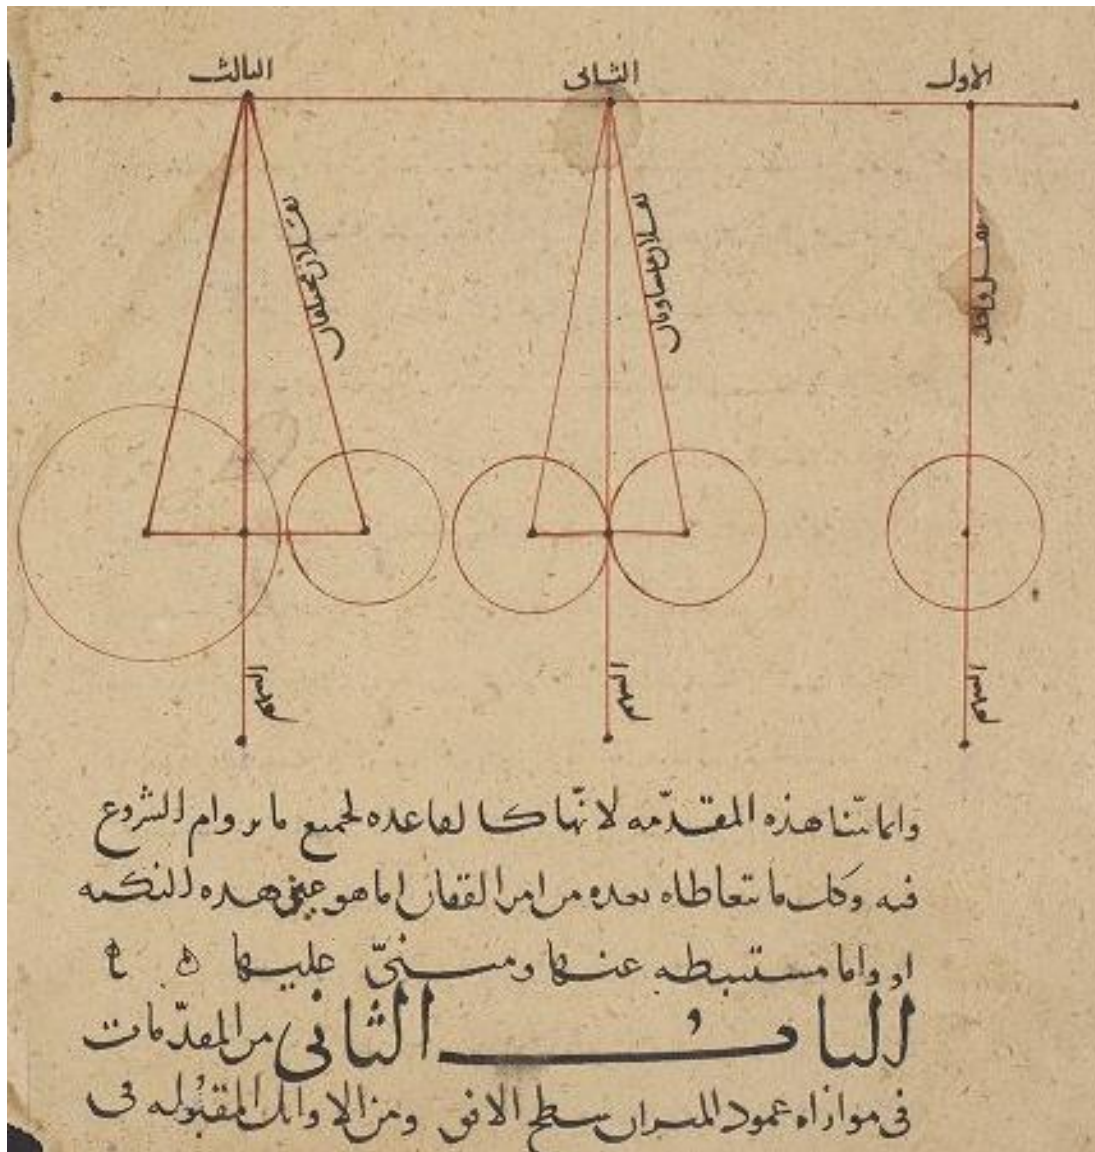 الاول
الثانى
الثالث
ثقل واحد
ثقلان متساويان
ثقلان مختلفان
وانما بيّنا هذه المقدّمه لانّها كالقاعده لجميع ما يروام الشروع
فيه وكل ما نتعاطاه بعده من امر القفان اما هو عين هذه النكته
او واما مستنبطه عنها ومبنىّ عليها
الباب الثانى من المقدّمات
فى موازاه عمود الميزان سطح الافق ومن الاوائل المقبوله فى